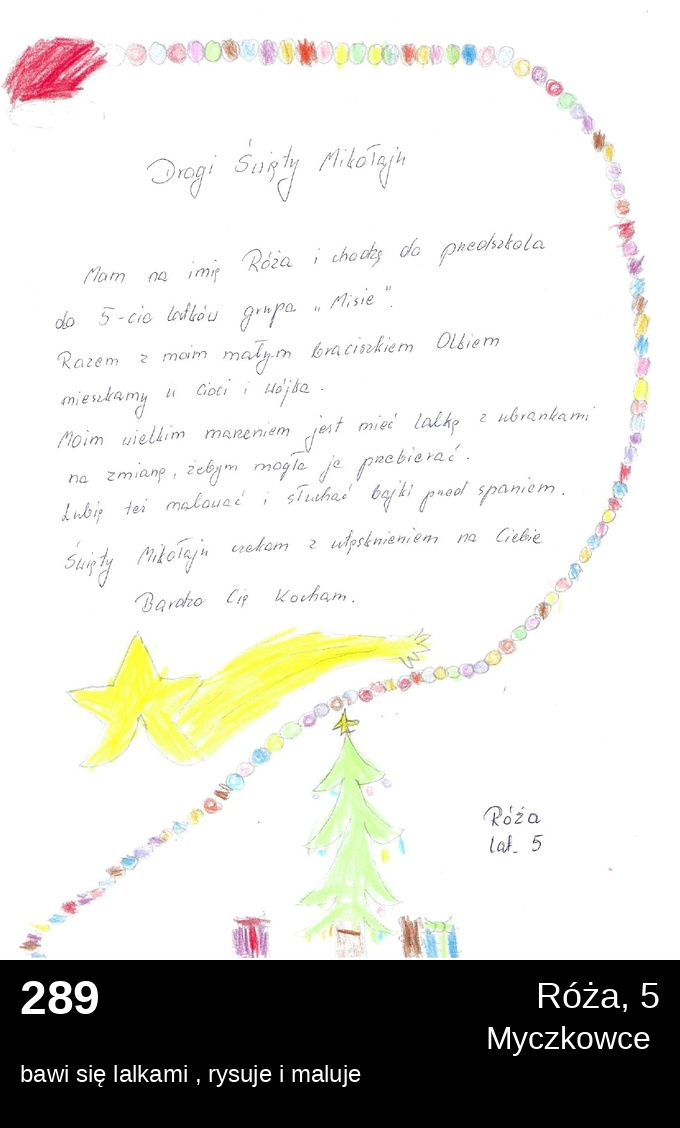 Drogi Święty Mikołaju
Mam na imię Róża i chodzę do przedszkola
do 5-cio latków grupa „Misie".
Razem z moim małym braciszkiem Olkiem
mieszkamy u cioci i wójka.
Moim wielkim marzeniem jest mieć lalkę z ubrankami
na zmianę, żebym mogła je przebierać.
Lubię też malować i słuchać bajki przed spaniem.
Święty Mikołaju czekam z utęsknieniem na Ciebie
Bardzo Cię Kocham.
Róża
lat. 5
289
Róża, 5
Myczkowce
bawi się lalkami , rysuje i maluje